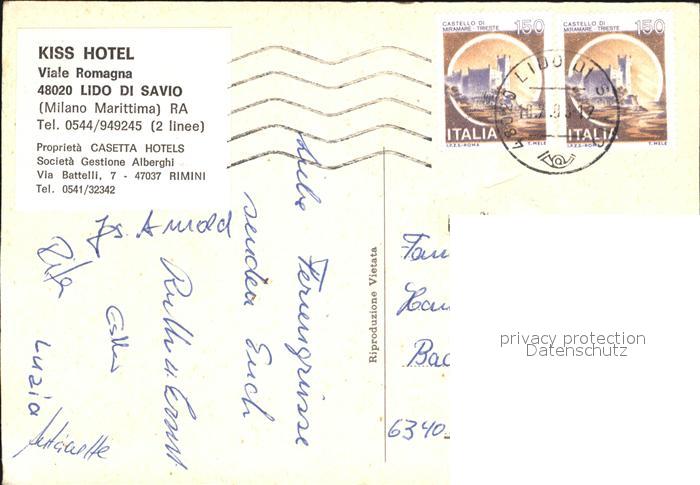 KISS HOTEL
Viale Romagna
48020 LIDO DI SAVIO
(Milano Marittima) RA
Tel. 0544/949245 (2 linee)
Proprietà CASETTA HOTELS
Società Gestione Alberghi
Via Battelli, 7 - 47037 RIMINI
Tel. 0541/32342
CASTELLO DI
MIRAMARE - TRIESTE
150
ITALIA
I.P.Z.S.-ROMA
T. MELE
CASTELLO DI
MIRAMARE - TRIESTE
150
ITALIA
I.P.Z.S.-ROMA
T. MELE
48020 LIDO DI S
Liebe Feriengrüsse
senden Euch
Ruth u. Ernst
Arnold
Rita
Luzia
Antoinette
Riproduzione Vietata
Fam
6340
privacy protection
Datenschutz